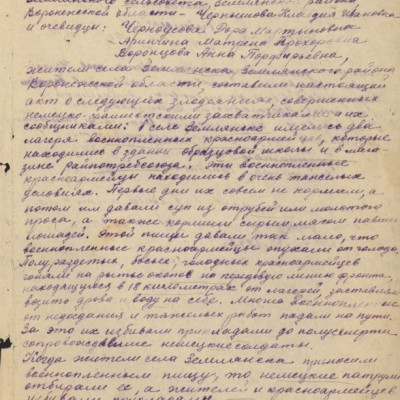 Землянского сельсовета, Землянского района
Воронежской области - Чернышова Клавдия Ивановна
и очевидцы: Черноусова Дора Мартыновна
Матрена Прохоровна
Воронцова Анна Порфирьевна,
жители села Землянска, Землянского района
Воронежской области, составили настоящий
акт о следующих злодеяниях, совершенных
немецко-фашистскими захватчиками и их
сообщниками: в селе Землянске имелось два
лагеря военнопленных красноармейцев, которые
находились в здании образцовой школы и в мага-
зине Райпотребсоюза. Эти военнопленные
красноармейцы находились в очень тяжелых
условиях. Первые дни их совсем не кормили, а
потом им давали суп из отрубей или молотого
проса, а также кормили сырым мясом павших
лошадей. Этой пищи давали так мало, что
военнопленные красноармейцы опухали от голода.
Полураздетых, босых, голодных красноармейцев
гоняли на рытье окопов на передовую линию фронта,
находящуюся в 18 километрах от лагерей, заставляли
возить дрова и воду на себе. Много военнопленных
от недоедания и тяжелых работ падали на пути.
За это их избивали прикладами до полусмерти
сопровождавшие немецкие солдаты.
Когда жители села Землянска приносили
военнопленным пищу, то немецкие патрули
отбирали ее, а жителей и красноармейцев
прикладами